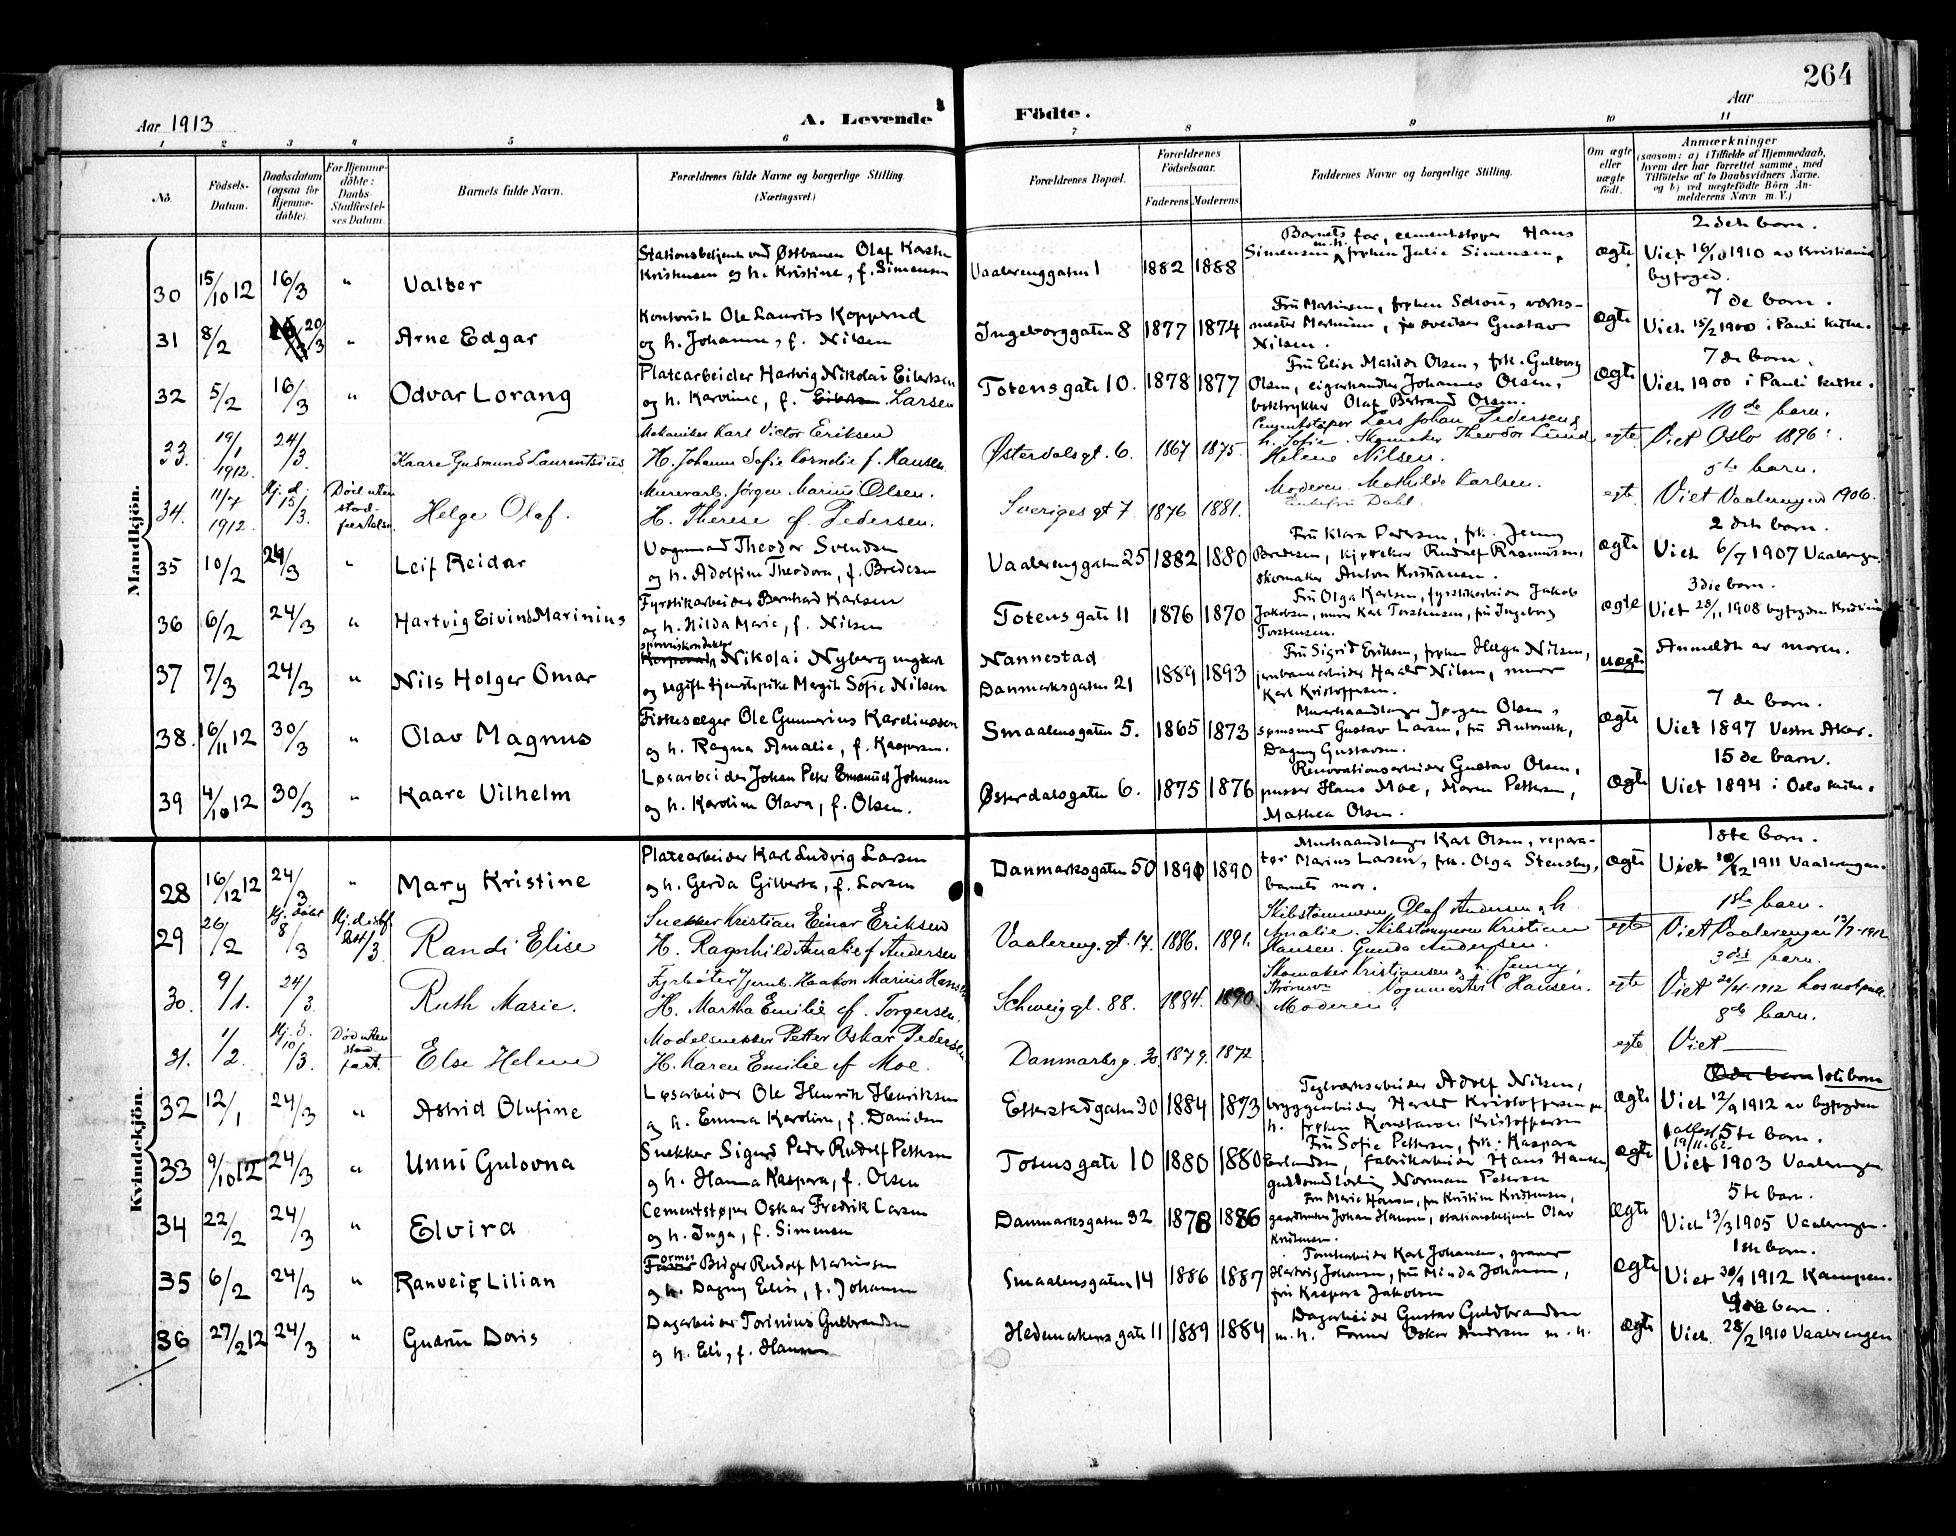 264
Aar 1913
A. Levende
Födte.
Aar
1 2 3 4 5 6 7 8 9 10 11
No.
Födsels-Datum.
Daabsdatum (ogsaa för Hjemme-döbte).
For Hjemme-döbte: Daabs-Stadfæstel-ses Datum.
Barnets fulde Navn.
Forældrenes fulde Navne og borgerlige Stilling. (Næringsvei.)
Forældrenes Bopæl.
Forældrenes Födselsaar.
Faderens Moderens
Faddernes Navne og borgerlige Stilling.
Om ægte eller uægte födt.
Anmærkninger
(saasom: a) i Tilfælde af Hjemmedaab, hvem der har forrettet samme, med Tilföielse af to Daabsvidners Navne, og b) ved uægtefödte Börn An-melderens Navn m. V.)
Mandkjön.
30 15/10 12 16/3 " Valter
Stationsbetjent ved Østbanen Olaf Kasten Kristensen og h. Kristine, f. Simensen
Vaalerenggaten 1 1882 1888
Barnets far, cementstøper Hans Simensen m.h., frøken Julie Simensen.
ægte
2 det barn.
Viet 16/10 1910 av Kristiania byfoged.
31 8/2 20/3 " Arne Edgar
Kontorist Ole Laurits Kopperud og h. Johanne, f. Nilsen
Ingeborggaten 8 1877 1874
Fru Martinsen, frøken Schou, værks-mester Martinsen, Gustav Nilsen.
ægte
7 de barn.
Viet 15/2 1900 i Pauli kirke.
32 5/2 16/3 " Odvar Lorang
Platearbeider Hartvig Nikolai Eilertsen og h. Karoline, f. Larsen
Totensgate 10. 1878 1877
Fru Elise Matilde Olsen, frk. Gulborg Olsen, Johannes Olsen, boktrykker Olaf Bertrand Olsen.
ægte
7 de barn.
Viet 1900 i Pauli kirke.
33. 19/1 1912. 24/3. Kaare Gudmund Laurentsius
Mekaniker Karl Victor Eriksen
H. Johanne Sofie Kornelie f. Hansen.
Østerdalsgt. 6. 1867 1875.
Cementstøper Lars Johan Pedersen & h. Sofie. Skomaker Theodor Lund Helene Nilsen.
egte
10 de barn.
Viet Oslo 1896.
34. 11/7 1912. Hj. d. 15/3. Død uten stad-fæstelse.
Helge Olaf.
Murerarb. Jørgen Marius Olsen.
H. Therese f. Pedersen.
Sveriges gt 7. 1876 1881.
Moderen Mathilde Karlsen.
Enkefru Dahl.
egte
5te barn.
Viet Vaalerengen 1906.
35 10/2 24/3 " Leif Reidar
Vognmand Theodor Svendsen og h. Adolfine Theodora, f. Bredesen
Vaalerenggaten 25 1882 1880
Fru Klara Pedersen, frk. Jenny Bredesen, Rudolf Rasmussen, skomaker Anton Kristiansen.
ægte
2 det barn.
Viet 6/7 1907 Vaalerengen.
36 6/2 24/3 " Hartvig Eivind Marinius
Fyrstikarbeider Bernhard Karlsen og h. Hilda Marie, f. Nilsen
Totensgate 11 1876 1870
Fru Olga Karlsen, fyrstikarbeider Jakob Jakobsen, murer Karl Torstensen, fru Ingeborg Torstensen.
ægte
3 die barn.
Viet 28/11 1908 byfogden Kristiania
37 7/3 24/3 " Nils Holger Omar
Nikolai Nyberg ungkarl og ugift tjenestepike Margit Sofie Nilsen
Nannestad
Danmarksgaten 21 1889 1893
Fru Sigrid Eriksen, frøken Helga Nilsen, jernbanearbeider Harald Nilsen, murer Karl Kristoffersen.
uægte
Anmeldt av moren.
38. 16/11 12 30/3 " Olav Magnus
Fiskesælger Ole Gunnerius Karelinssen og h. Ragna Amalie, f. Kaspersen.
Smaalensgaten 5. 1865 1873
Murerhaandlanger Jørgen Olsen, Gustav Larsen, fru Antonette, Dagny Gustavsen.
ægte
7 de barn.
Viet 1897 Vestre Aker.
39 4/10 12 30/3 " Kaare Vilhelm
Løsarbeider Johan Peter Emanuel Johnsen og h. Karoline Olava, f. Olsen.
Østerdalsgaten 6. 1875 1876
Renovationsarbeider Gustav Olsen, pusser Hans Moe, Maren Pettersen, Mathea Olsen.
ægte
15 de barn.
Viet 1894 i Oslo kirke.
Kvindekjön.
28 16/12 12 24/3 " Mary Kristine
Platearbeider Karl Ludvig Larsen og h. Gerda Gilberta, f. Larsen
Danmarksgaten 50 1890 1890
Murhaandlanger Karl Olsen, repara-tør Marius Larsen, frk. Olga Stensby, barnets mor.
ægte
1 ste barn.
Viet 1911 Vaalerengen.
29 26/2 Hj. døbt 8/3 Hj. d. stadf 24/3 Randi Elise
Snekker Kristian Einar Eriksen
H. Ragnhild Amalie f Andersen
Vaalereng. gt. 17. 1886. 1891.
Skibstømmerm. Olaf Andersen & h. Amalie. Skibstømmerm Kristian Hansen. Gunda Andersen.
egte
1ste barn.
Viet Vaalerengen 1912
30. 9/1. 24/3. Ruth Marie.
Fyrbøter v/jernb. Haakon Marius Hansen
H. Martha Emilie f. Torgersen.
Schweigt. 88. 1884. 1890.
Skomaker Kristiansen & h. Jenny, Strømsø Vognmester Hansen. Moderen.
egte
3die barn.
Viet 20/4-1912 hos not.publ.
31. 1/2. Hj. d. 10/3. Død uten stad fæst.
Else Helene
Modelsnekker Petter Oskar Pedersen
H. Karen Emilie f Moe.
Danmarksg. 30 1879. 1872
egte
8de barn.
Viet
32 12/1 24/3 " Astrid Olufine
Løsarbeider Ole Henrik Henriksen og h. Emma Karoline, f. Danielsen
Etterstadgaten 30 1884 1873
Teglværksarbeider Adolf Nilsen, bryggearbeider Harald Kristoffersen og h. frøken Konstanse Kristoffersen
ægte
1 ste barn
Viet 12/9 1912 av byfogden
33 9/10 12 24/3 " Unni Gulovna
Snekker Sigurd Peder Rudolf Pettersen og h. Hanna Kaspara, f. Olsen
Totensgate 10 1880 1880
Fru Sofie Pettersen, frk. Kaspara Erlandsen, fabrikarbeider Hans Hansen guldsmedlærling Norman Petersen
ægte
5te barn.
19/11-62
Viet 1903 Vaalerengen
34 22/2 24/3 " Elvira
Cementstøper Oskar Fredrik Larsen og h. Inga, f. Simensen
Danmarksgaten 32 1878 1886
Fru Marie Hansen, fru Kristine Kristensen, Johan Hansen, stationsbetjent Olav Kristensen.
ægte
5 te barn.
Viet 13/3 1905 Vaalerengen.
35 6/2 24/3 " Ranveig Lilian
Former Birger Rudolf Martinsen og h. Dagny Elise, f. Johansen
Smaalensgaten 14 1886 1887
Tomtearbeider Karl Johansen, gravør Hartvig Johansen, fru Minda Johansen, fru Kaspara Jakobsen
ægte
1 ste barn.
Viet 30/9 1912 Kampen.
36 27/2 12 24/3 " Gudrun Doris
Dagarbeider Torinius Gulbrandsen og h. Eli, f. Hansen
Hedemarkens gate 11 1889 1884
Dagarbeider Gustav Guldbrandsen m. h. Former Oskar Andersen m. h.
ægte
barn.
Viet 28/2 1910 Vaalerengen